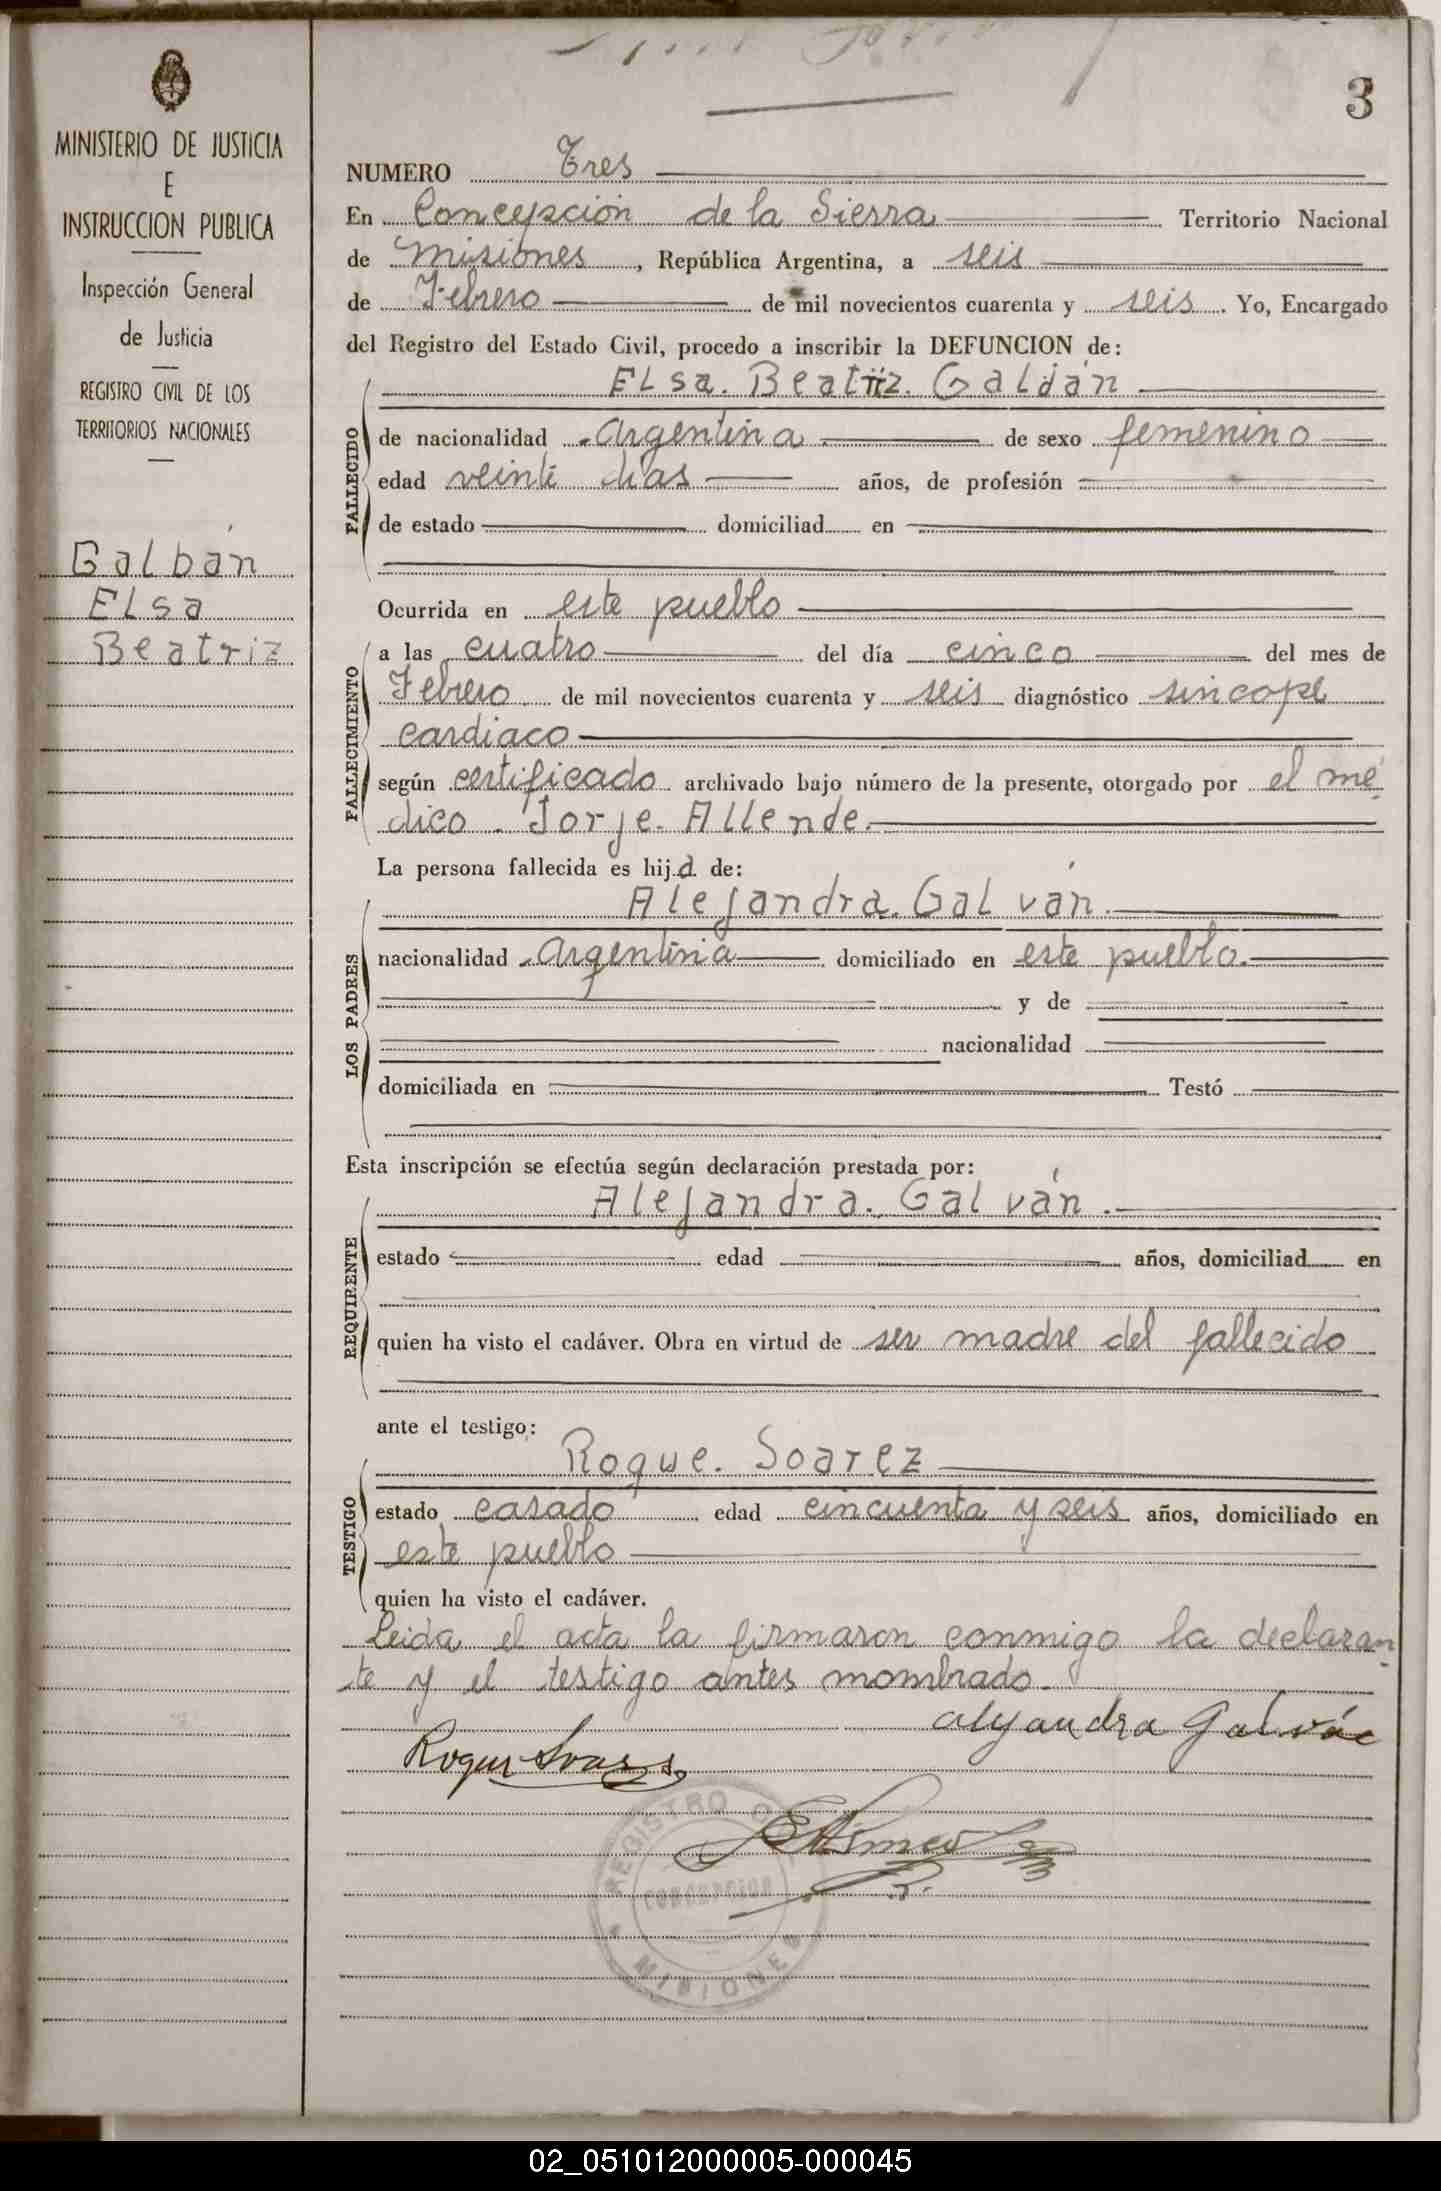 3
MINISTERIO DE JUSTICIA
E
INSTRUCCION PUBLICA
Inspección General
de Justicia
REGISTRO CIVIL DE LOS
TERRITORIOS NACIONALES
Galbán
Elsa
Beatriz
NUMERO Tres
En Concepción de la Sierra Territorio Nacional
de Misiones, República Argentina, a seis
de Febrero de mil novecientos cuarenta y seis. Yo, Encargado
del Registro del Estado Civil, procedo a inscribir la DEFUNCION de:
Elsa. Beatriz. Galbán
FALLECIDO
de nacionalidad Argentina de sexo femenino
edad veinte dias años, de profesión
de estado domiciliad en
Ocurrida en este pueblo
FALLECIMIENTO
a las cuatro del día cinco del mes de
Febrero de mil novecientos cuarenta y seis diagnóstico sincope
cardiaco
según certificado archivado bajo número de la presente, otorgado por el mé-
dico. Jorje. Allende.
La persona fallecida es hija de:
LOS PADRES
Alejandra. Galván.
nacionalidad Argentina domiciliado en este pueblo.
y de
nacionalidad
domiciliada en Testó
Esta inscripción se efectúa según declaración prestada por:
REQUIRENTE
Alejandra. Galván.
estado edad años, domiciliad en
quien ha visto el cadáver. Obra en virtud de ser madre del fallecido
ante el testigo:
TESTIGO
Roque. Soarez
estado casado edad cincuenta y seis años, domiciliado en
este pueblo
quien ha visto el cadáver.
Leida el acta la firmaron conmigo la declaran-
te y el testigo antes mombrado.
Alejandra Galván
Roque Soarez
REGISTRO
CONCEPCION
MISIONES
02_051012000005-000045